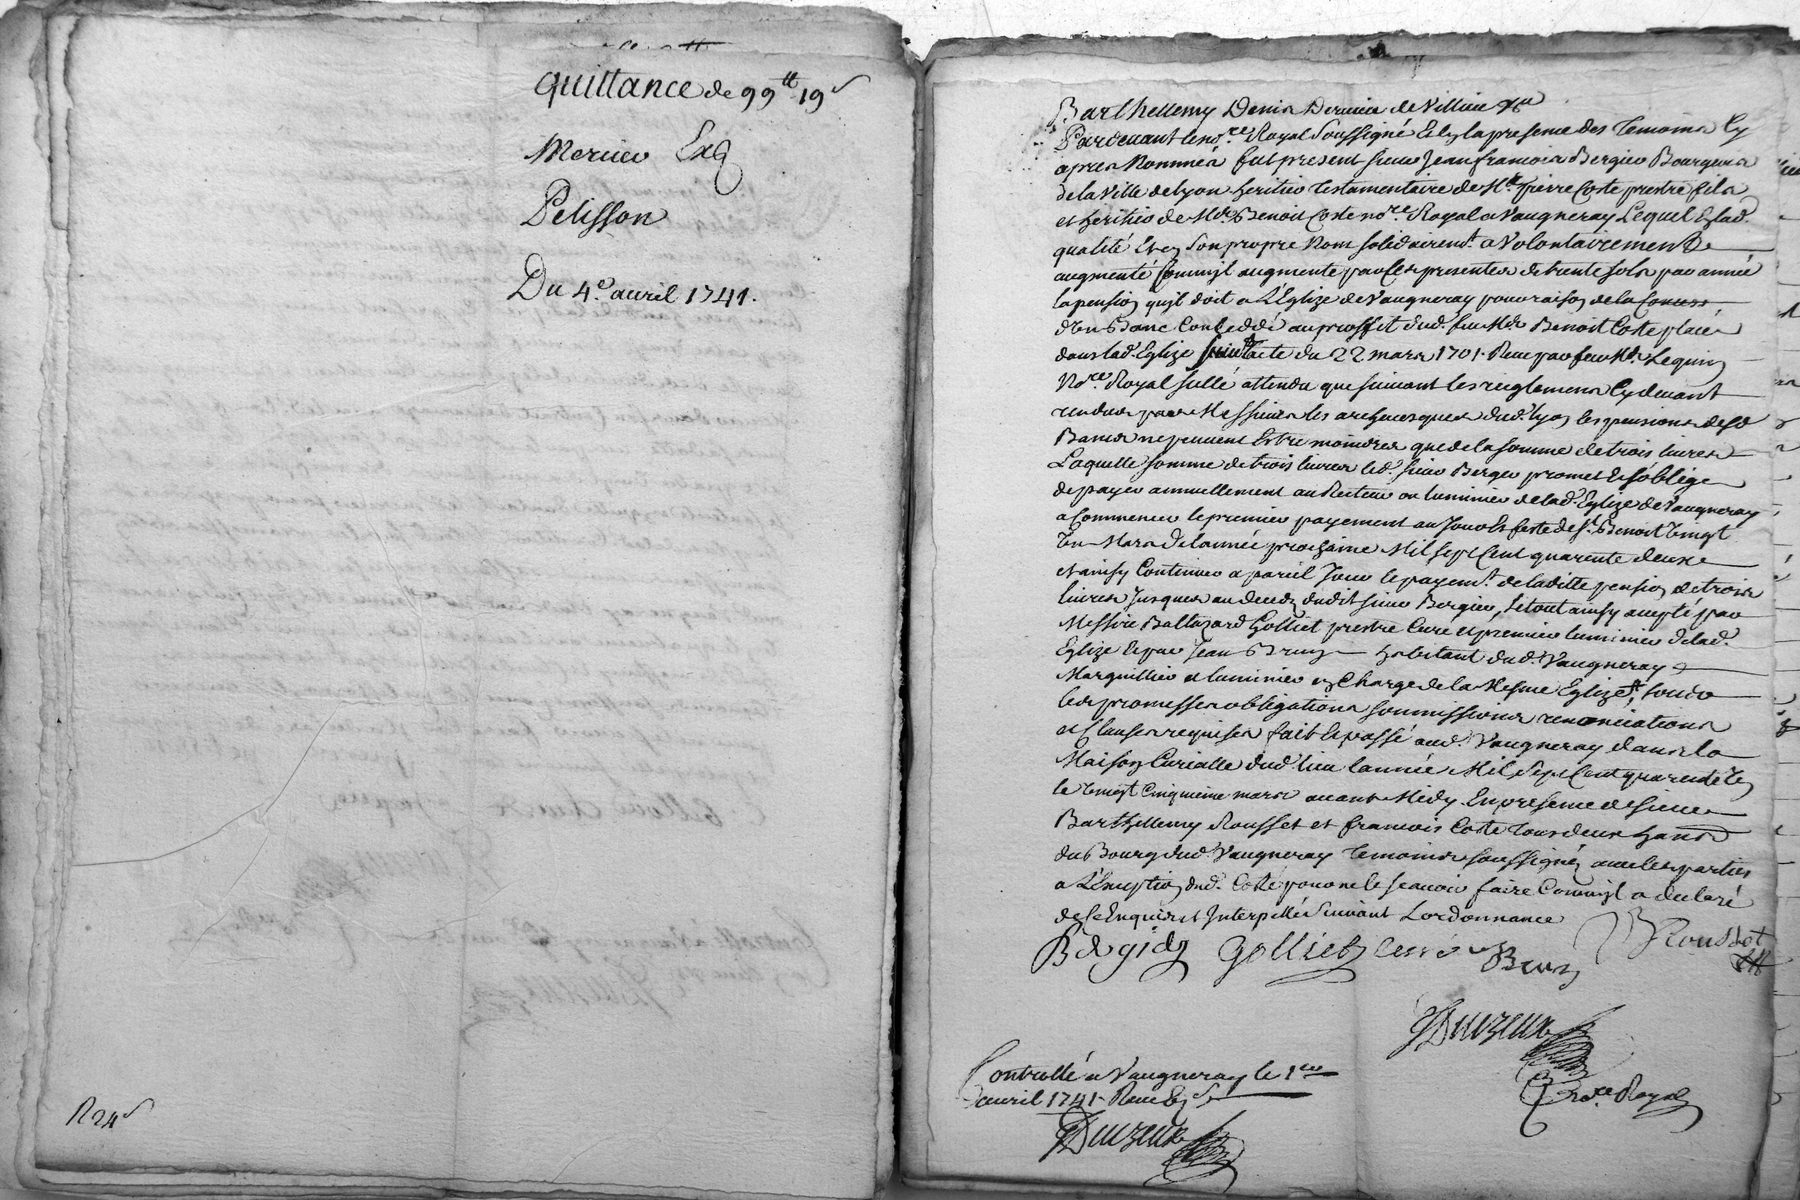 quittance de 99 tt 19 s
Mercier
Pelisson
Du 4e. avril 1741.
R 24 s
Barthellemy Denis Dernier de Villieu
Pardevant le nore. Royal soussigné et en la presence des temoins cy
apres nommés fut present sieur Jean francois Bergier Bourgeois
de la ville de lyon heritier testamentaire de Mre pierre Coste prestre fils
et heritier de Me. Benoit Coste nore. Royal a Vaugneray Lequel en lad.
qualité et en son propre nom solidairemt. a Volontairement
augmenté comm'jl augmente par ces presentes de trente sols par année
la pension qu'jl doit a L'Eglize de Vaugneray pour raison de la
d'un Banc Conceddé au proffit dud. feu Me Benoit Coste placé
dans lad. Eglize suivt. l'acte du 22 mars 1701. Receu par feu Me. Lequin
Nore. Royal sur ce attendu que suivant les reiglemens cy devant
rendus par Messieurs les archevesques dud. lyon les pensions desd.
Bancs ne peuvent Estre moindres que de la somme de trois livres
Laquelle somme de trois livres led. sieur Bergier promet et s'oblige
de payer annuellement au Recteur ou luminier de lad. Eglize de Vaugneray
a Commencer le premier payement au Jour et feste de st. Benoit Vingt
Un Mars de l'année prochaine Mil sept Cent quarente deux
et ainsy Continuer a pareil Jour le payemt. de laditte pension de trois
livres Jusques au deceds dudit sieur Bergier, Le tout ainsy accepté par
Messire Baltazard Golliet prestre Curé et premier luminier de lad.
Eglize et par Jean Brun habitant dud. Vaugneray
Marguillier et luminier en Charge de la Mesme Eglize, sous
les promesses obligations soummissions renonciations
et Clauses requises fait et passé aud. Vaugneray dans la
Maison Curialle dud. lieu l'année Mil Sept Cent quarente Un
le Vingt Cinquieme mars avant Midy En presence de sieur
Barthellemy Rousset et francois Coste tous deux habts.
du Bourg dud. Vaugneray temoins soussignés avec les parties
a L'Exception dud. Coste pour ne le scavoir faire Comm'jl a declaré
de ce Enquis et Interpellé suivant L'ordonnance
Bergier Golliet curé Brun B Rousset
Duvzeux
nore. Royal
Controllé a Vaugneray le 1er
avril 1741. Receu
Duvzeux